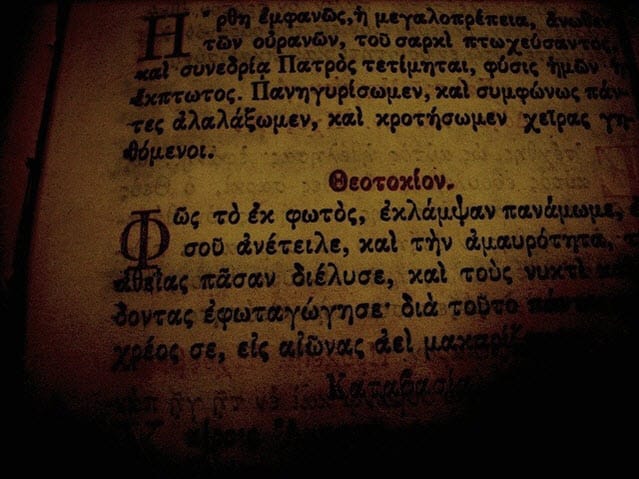 Ἤρθη ἐμφανῶς, ἡ μεγαλοπρέπεια, ἄνωθεν
τῶν οὐρανῶν, τοῦ σαρκὶ πτωχεύσαντος,
καὶ συνεδρίᾳ Πατρὸς τετίμηται, φύσις ἡμῶν ἡ
ἔκπτωτος. Πανηγυρίσωμεν, καὶ συμφώνως πάν-
τες ἀλαλάξωμεν, καὶ κροτήσωμεν χεῖρας γη-
θόμενοι.
Θεοτοκίον.
Φῶς τὸ ἐκ φωτὸς, ἐκλάμψαν πανάμωμε, ἐ
σοῦ ἀνέτειλε, καὶ τὴν ἀμαυρότητα, τ
ἀθεΐας πᾶσαν διέλυσε, καὶ τοὺς νυκτὶ
δοντας ἐφωταγώγησε· διὰ τοῦτο πάντες
χρέος σε, εἰς αἰῶνας ἀεὶ μακαρίζ
Καταβασία